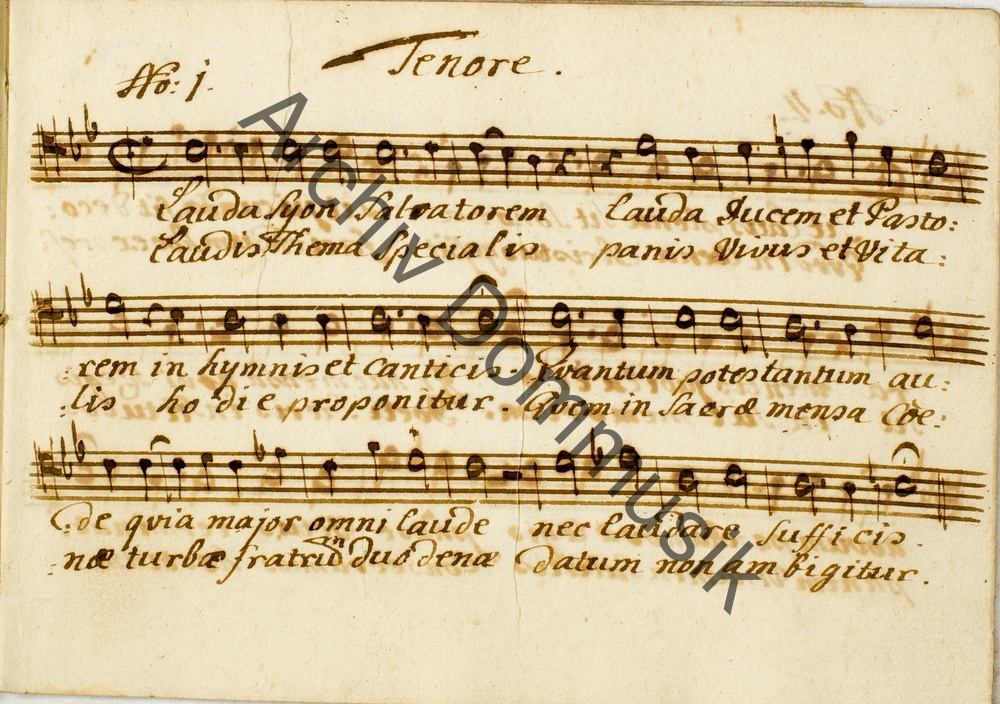 Tenore.
No: 1.
Lauda Syon Salvatorem Lauda Ducem et Pasto:
Laudis Thema Specialis panis Vivus et Vita:
:rem in hymnis et Canticis. Quantum potes tantum au:
:lis ho di e proponitur. Quem in Sacræ mensa Coe:
:de qvia major omni laude nec laudare sufficis.
:næ turbæ fratrum duodenæ datum non ambigitur.
Archiv Dommusik